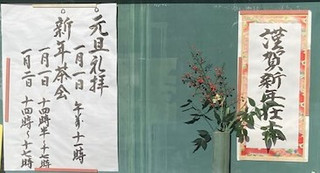 謹賀新年
元旦礼拝
一月一日 午前十一時
新年茶会
一月一日 十四時半〜十七時
一月二日 十四時〜十七時